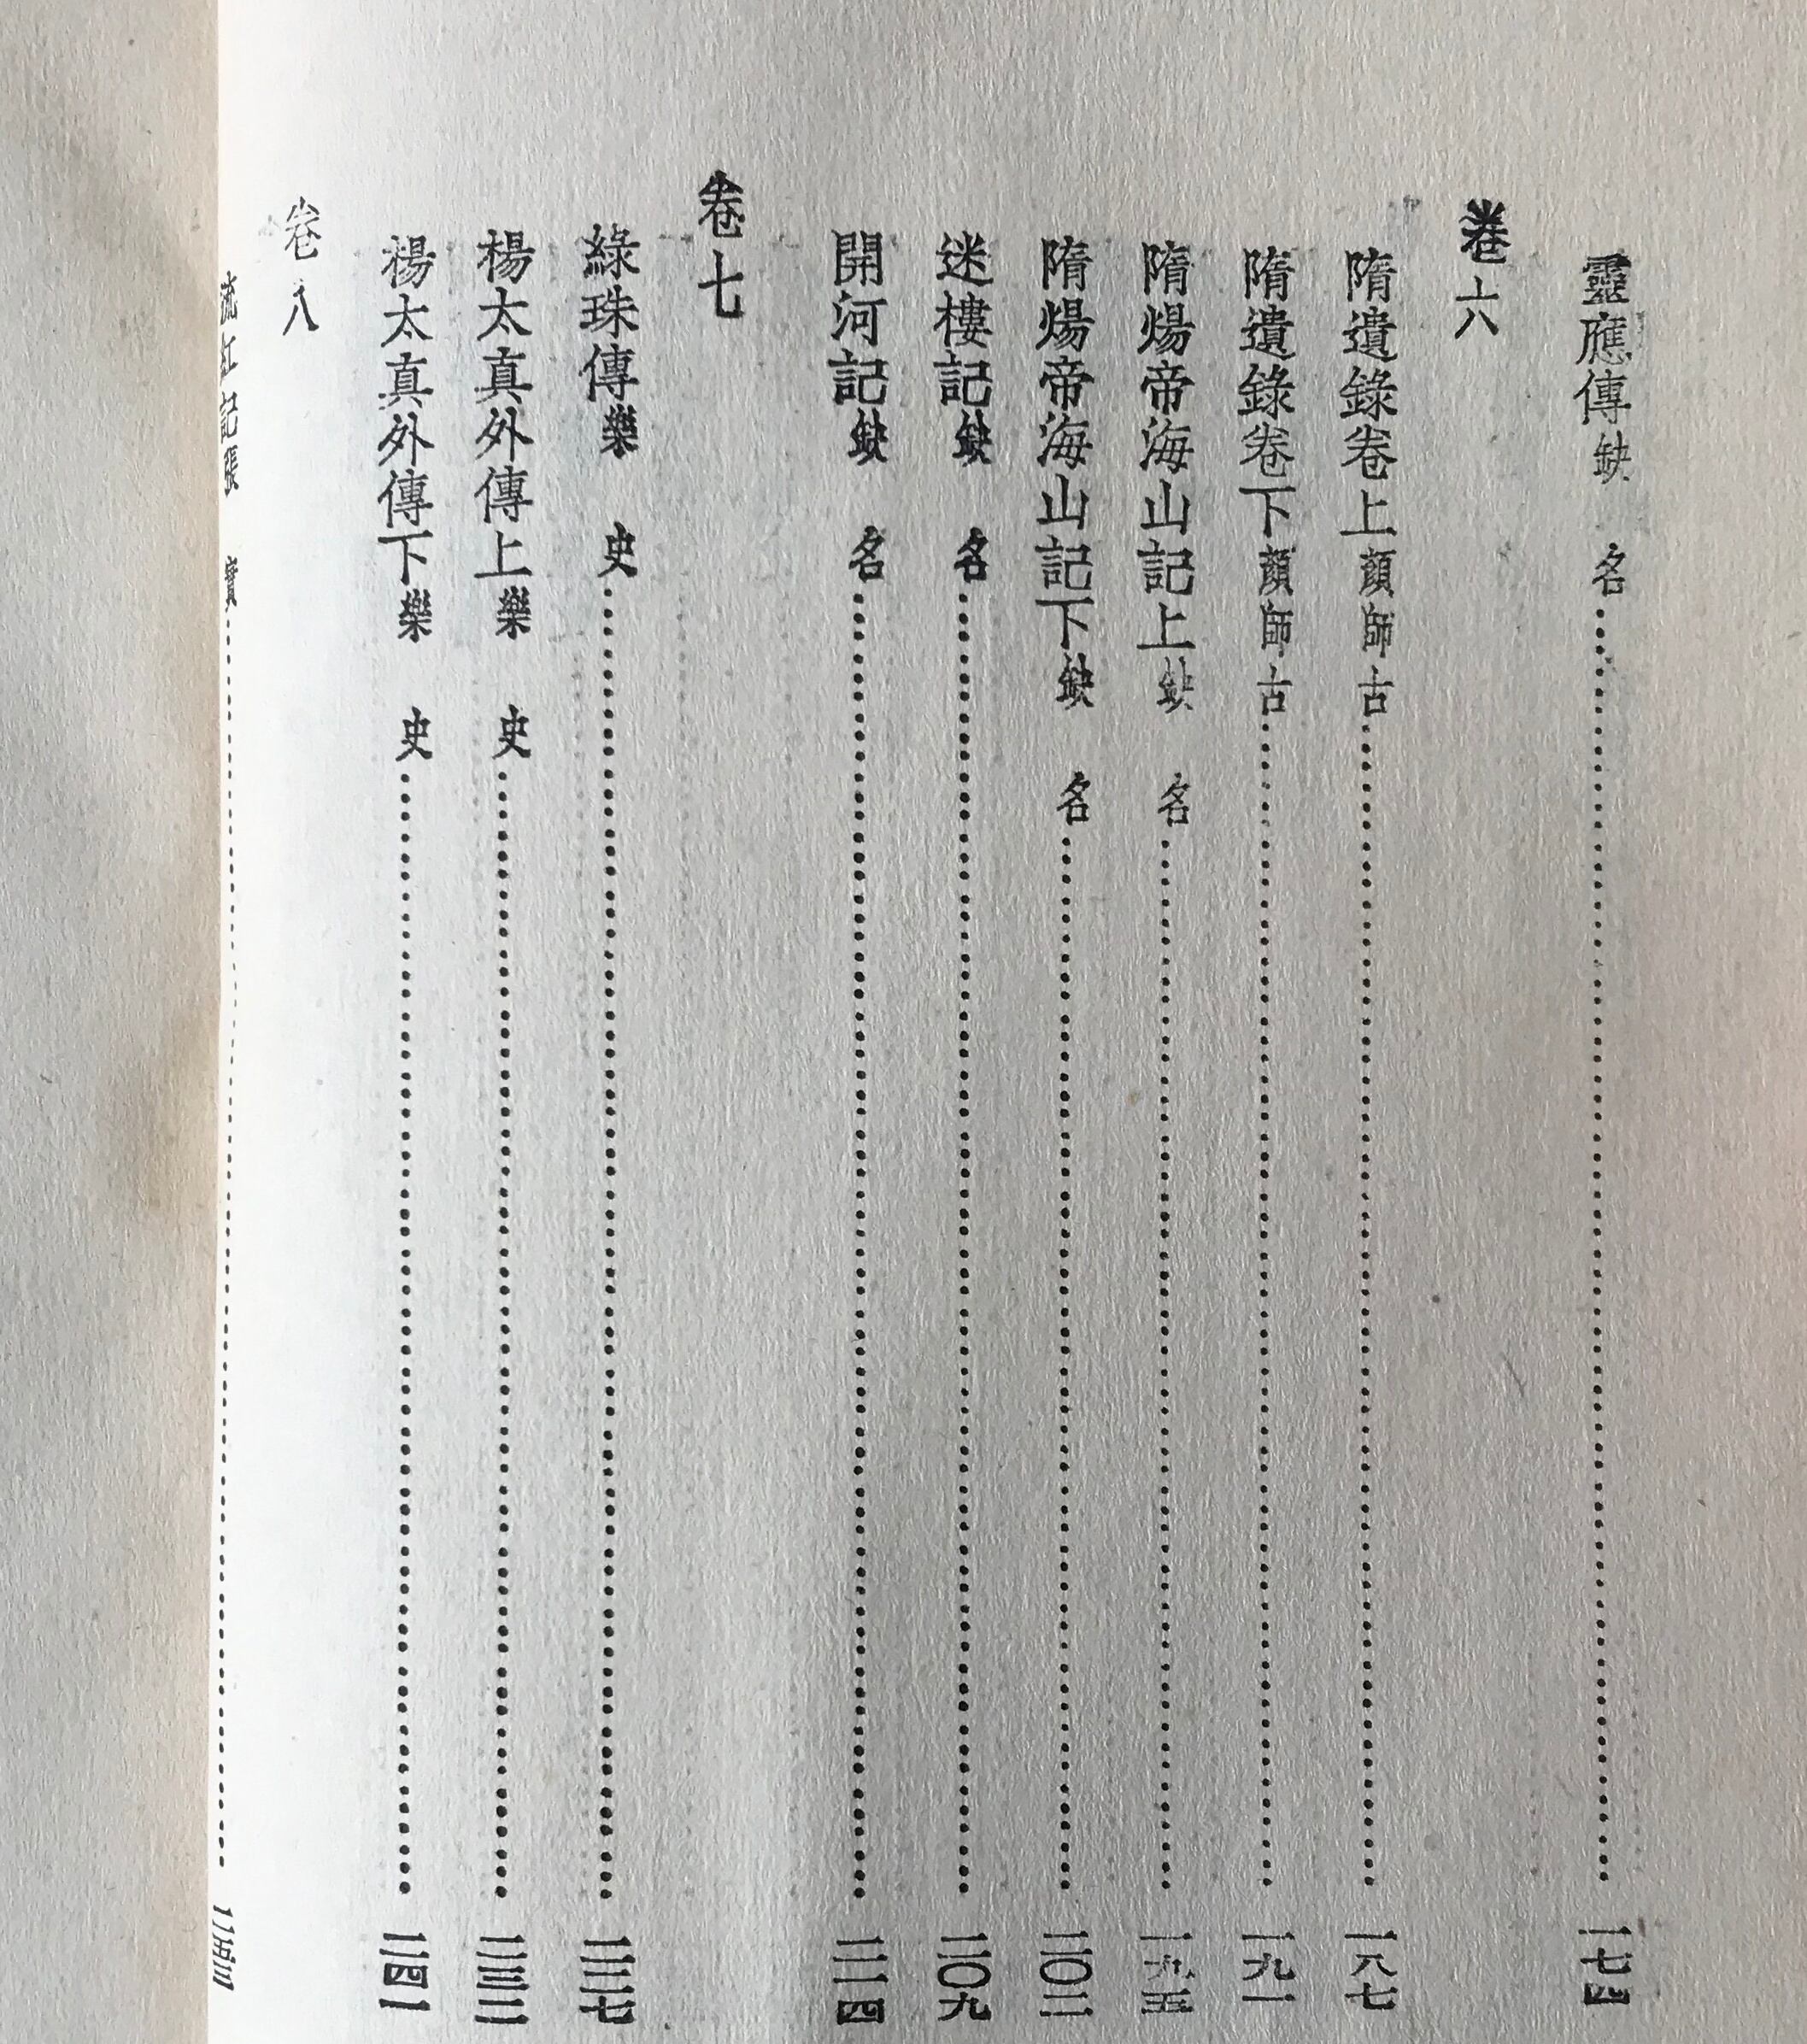 靈應傳缺　名……一七四
卷六
隋遺錄卷上顏師古……一八七
隋遺錄卷下顏師古……一九一
隋煬帝海山記上缺　名……一九五
隋煬帝海山記下缺　名……二〇二
迷樓記缺　名……二〇九
開河記缺　名……二一四
卷七
綠珠傳樂　史……二二七
楊太真外傳上樂　史……二三二
楊太真外傳下樂　史……二四一
卷八
流紅記張　實……二五三